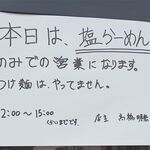 本日は、塩らーめん
のみでの営業になります。
つけ麺は、やってません。
2:00〜15:00
店主